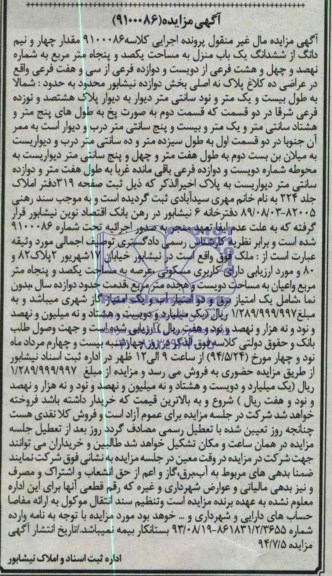 آگهی مزایده(۹۱۰۰۰۸۶)
آگهی مزایده مال غیر منقول پرونده اجرایی کلاسه۹۱۰۰۰۸۶ مقدار چهار و نیم
دانگ از ششدانگ یک باب منزل به مساحت یکصد و پنجاه متر مربع به شماره
نهصد و چهل و هشت فرعی از دویست و دوازده فرعی از سی و هفت فرعی واقع
در عراضی ده کلاغ پلاک نه اصلی بخش دوازده نیشابور محدود به حدود : شمالا
به طول بیست و یک متر و نود سانتی متر دیوار به دیوار پلاک هشتصد و نوزده
فرعی شرقا در دو قسمت که قسمت دوم به صورت پخ به طول های پنج متر و
هشتاد سانتی متر و یک متر و بیست و پنج سانتی متر درب و دیوار است به ممر
آن جنوبا در دو قسمت اول به طول سیزده متر و ده سانتی متر درب و دیواریست
به میلان بن بست دوم به طول هفت متر و چهل و پنج سانتی متر دیواریست به
محوطه شماره دویست و دوازده فرعی باقی مانده غربا به طول هفت متر و دوازده
سانتی متر دیواریست به پلاک اخیرالذکر که ذیل ثبت صفحه ۳۱۹دفتر املاک
جلد ۲۲۴ به نام خانم مهری سیدآبادی ثبت گردیده است و به موجب سند رهنی
۸۲۰۰۵-۸۹/۰۸/۰۳ دفترخانه ۶ نیشابور در رهن بانک اقتصاد نوین نیشابور قرار
گرفته که به علت عدم ایفا تعهد منجر به صدور اجرائیه تحت شماره ۹۱۰۰۰۸۶
شده است و برابر نظریه کارشناس رسمی دادگستری توصیف اجمالی مورد وثیقه
عبارت است از : ملک فوق واقع است در نیشابور خیابان ۱۷شهریور ۲پلاک۸۲ و
۸۰ و مورد ارزیابی دارای کاربری مسکونی .عرصه به مساحت یکصد و پنجاه متر
مربع واعیان به مساحت دویست و هجده متر مربع .قدمت حدود دوازده سال بدون
نما .شامل یک امتیاز برق و دو امتیاز آب و یک امتیاز گاز شهری میباشد و به
مبلغ۱/۲۸۹/۹۹۹/۹۹۷ ریال (یک میلیارد و دویست و هشتاد و نه میلیون و نهصد
و نود و نه هزار و نهصد و نود و هفت ریال ) ارزیابی شده است و جهت وصول طلب
بانک و حقوق دولتی کلاسه فوق الذکر در روز چهارشنبه بیست و چهارم مرداد ماه
نود و چهار مورخ (۹۴/۵/۲۴) از ساعت ۹ الی۱۲ ظهر در اداره ثبت اسناد نیشابور
از طریق مزایده حضوری به فروش می رسد و مزایده از مبلغ ۱/۲۸۹/۹۹۹/۹۹۷
ریال (یک میلیارد و دویست و هشتاد و نه میلیون و نهصد و نود و نه هزار و نهصد
و نود و هفت ریال ) شروع و به بالاترین قیمت که خریدار داشته باشد فروخته
خواهد شد شرکت در جلسه مزایده برای عموم آزاد است و فروش کلا نقدی هست
چنانچه روز تعیین شده با تعطیل رسمی مصادف گردد روز بعد از تعطیل جلسه
مزایده در همان ساعت و مکان تشکیل خواهد شد طالبین و خریداران می توانند
جهت شرکت در مزایده در وقت معین در جلسه مزایده به نشانی فوق شرکت نمایند
ضمنا بدهی های مربوط به آب،برق،گاز و اعم از حق انشعاب و اشتراک و مصرف
و نیز بدهی مالیاتی و عوارض شهرداری و غیره که رقم قطعی آنها برای این اداره
معلوم نشده به عهده برنده مزایده است وتنظیم سند انتقال موکول به ارائه مفاصا
حساب های دارایی و شهرداری و .. خواهد بود مورد مزایده با توجه به نامه وارده
شماره ۸۶۱۸۳۱/۲/۳۶۵۵-۹۳/۰۸/۱۹ بستانکار بیمه نمیباشد./تاریخ انتشار آگهی
مزایده ۹۴/۷/۵
اداره ثبت اسناد و املاک نیشابور